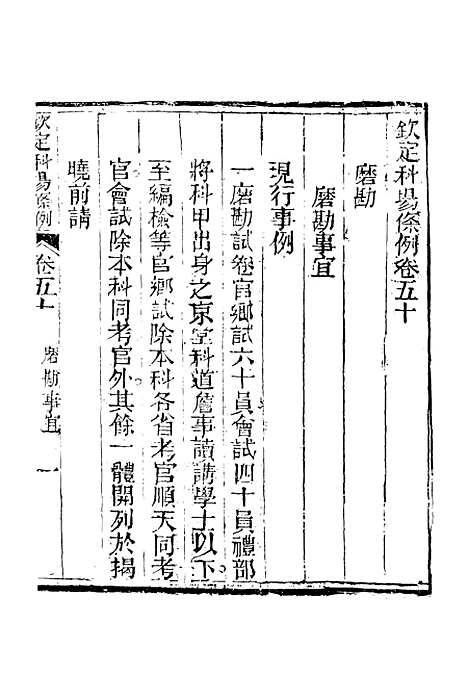 欽定科場條例卷五十
磨勘
磨勘事宜
現行事例
一磨勘試卷官鄉試六十員會試四十員禮部
將科甲出身之京堂科道詹事讀講學士以下
至編檢等官鄉試除本科各省考官順天同考
官會試除本科同考官外其餘一體開列於揭
曉前請
欽定科場條例
卷五十
磨勘事宜
一